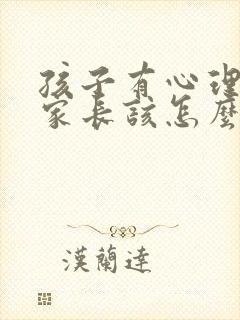 孩子有心理
家長該怎麼
漢蘭達